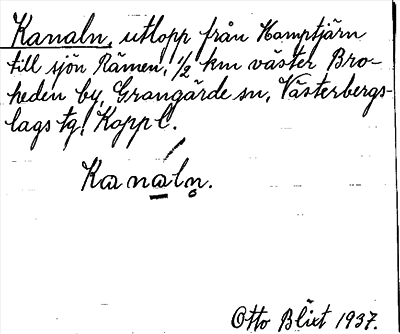 Kanaln, utlopp från Hamptjärn
till sjön Rämen, 1/2 km väster Bro-
heden by, Grangärde sn, Västerbergs-
lags tg, Kopp l.
Kanaln.
Otto Blixt 1937.